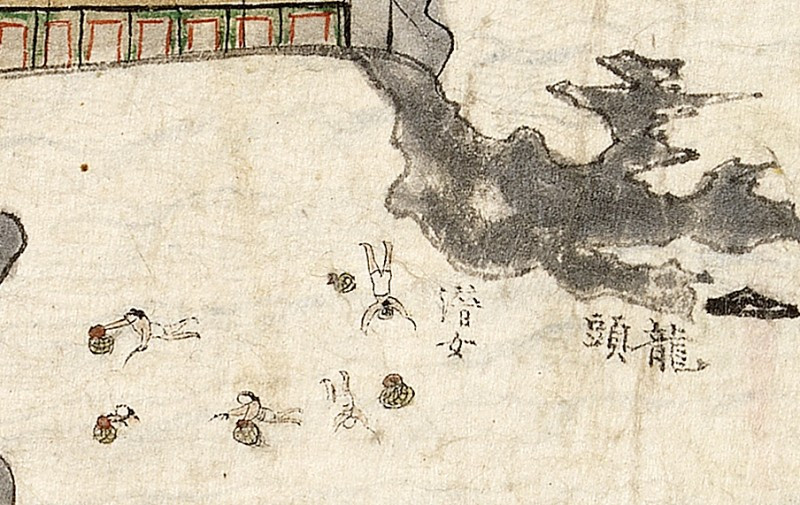 龍頭
潛女